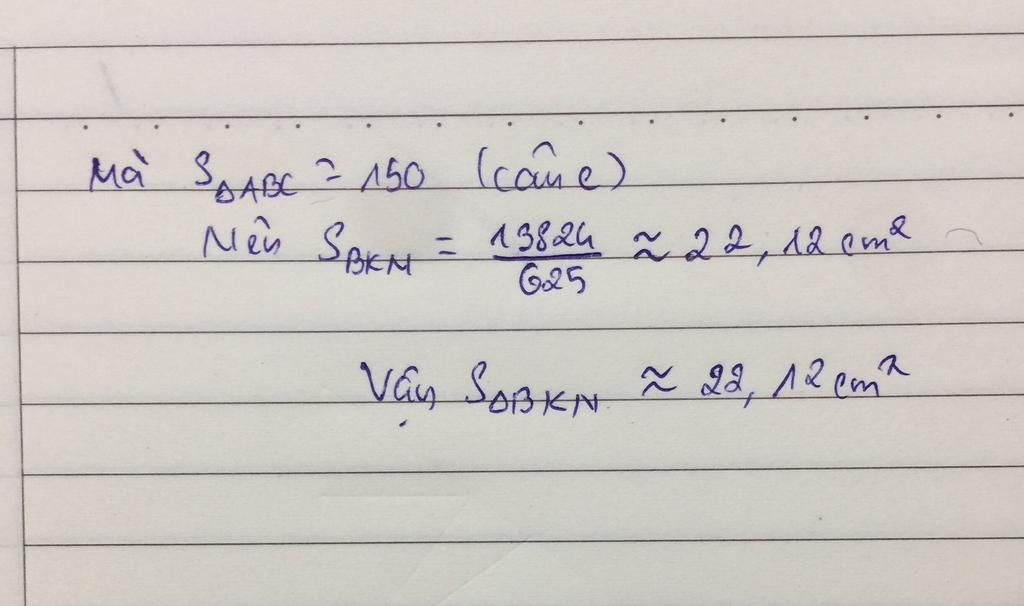 Mà S△ABC = 150 (câu c)
Nên S_BKN = 13824/625 ≈ 22,12 cm²
Vậy S△BKN ≈ 22,12 cm²